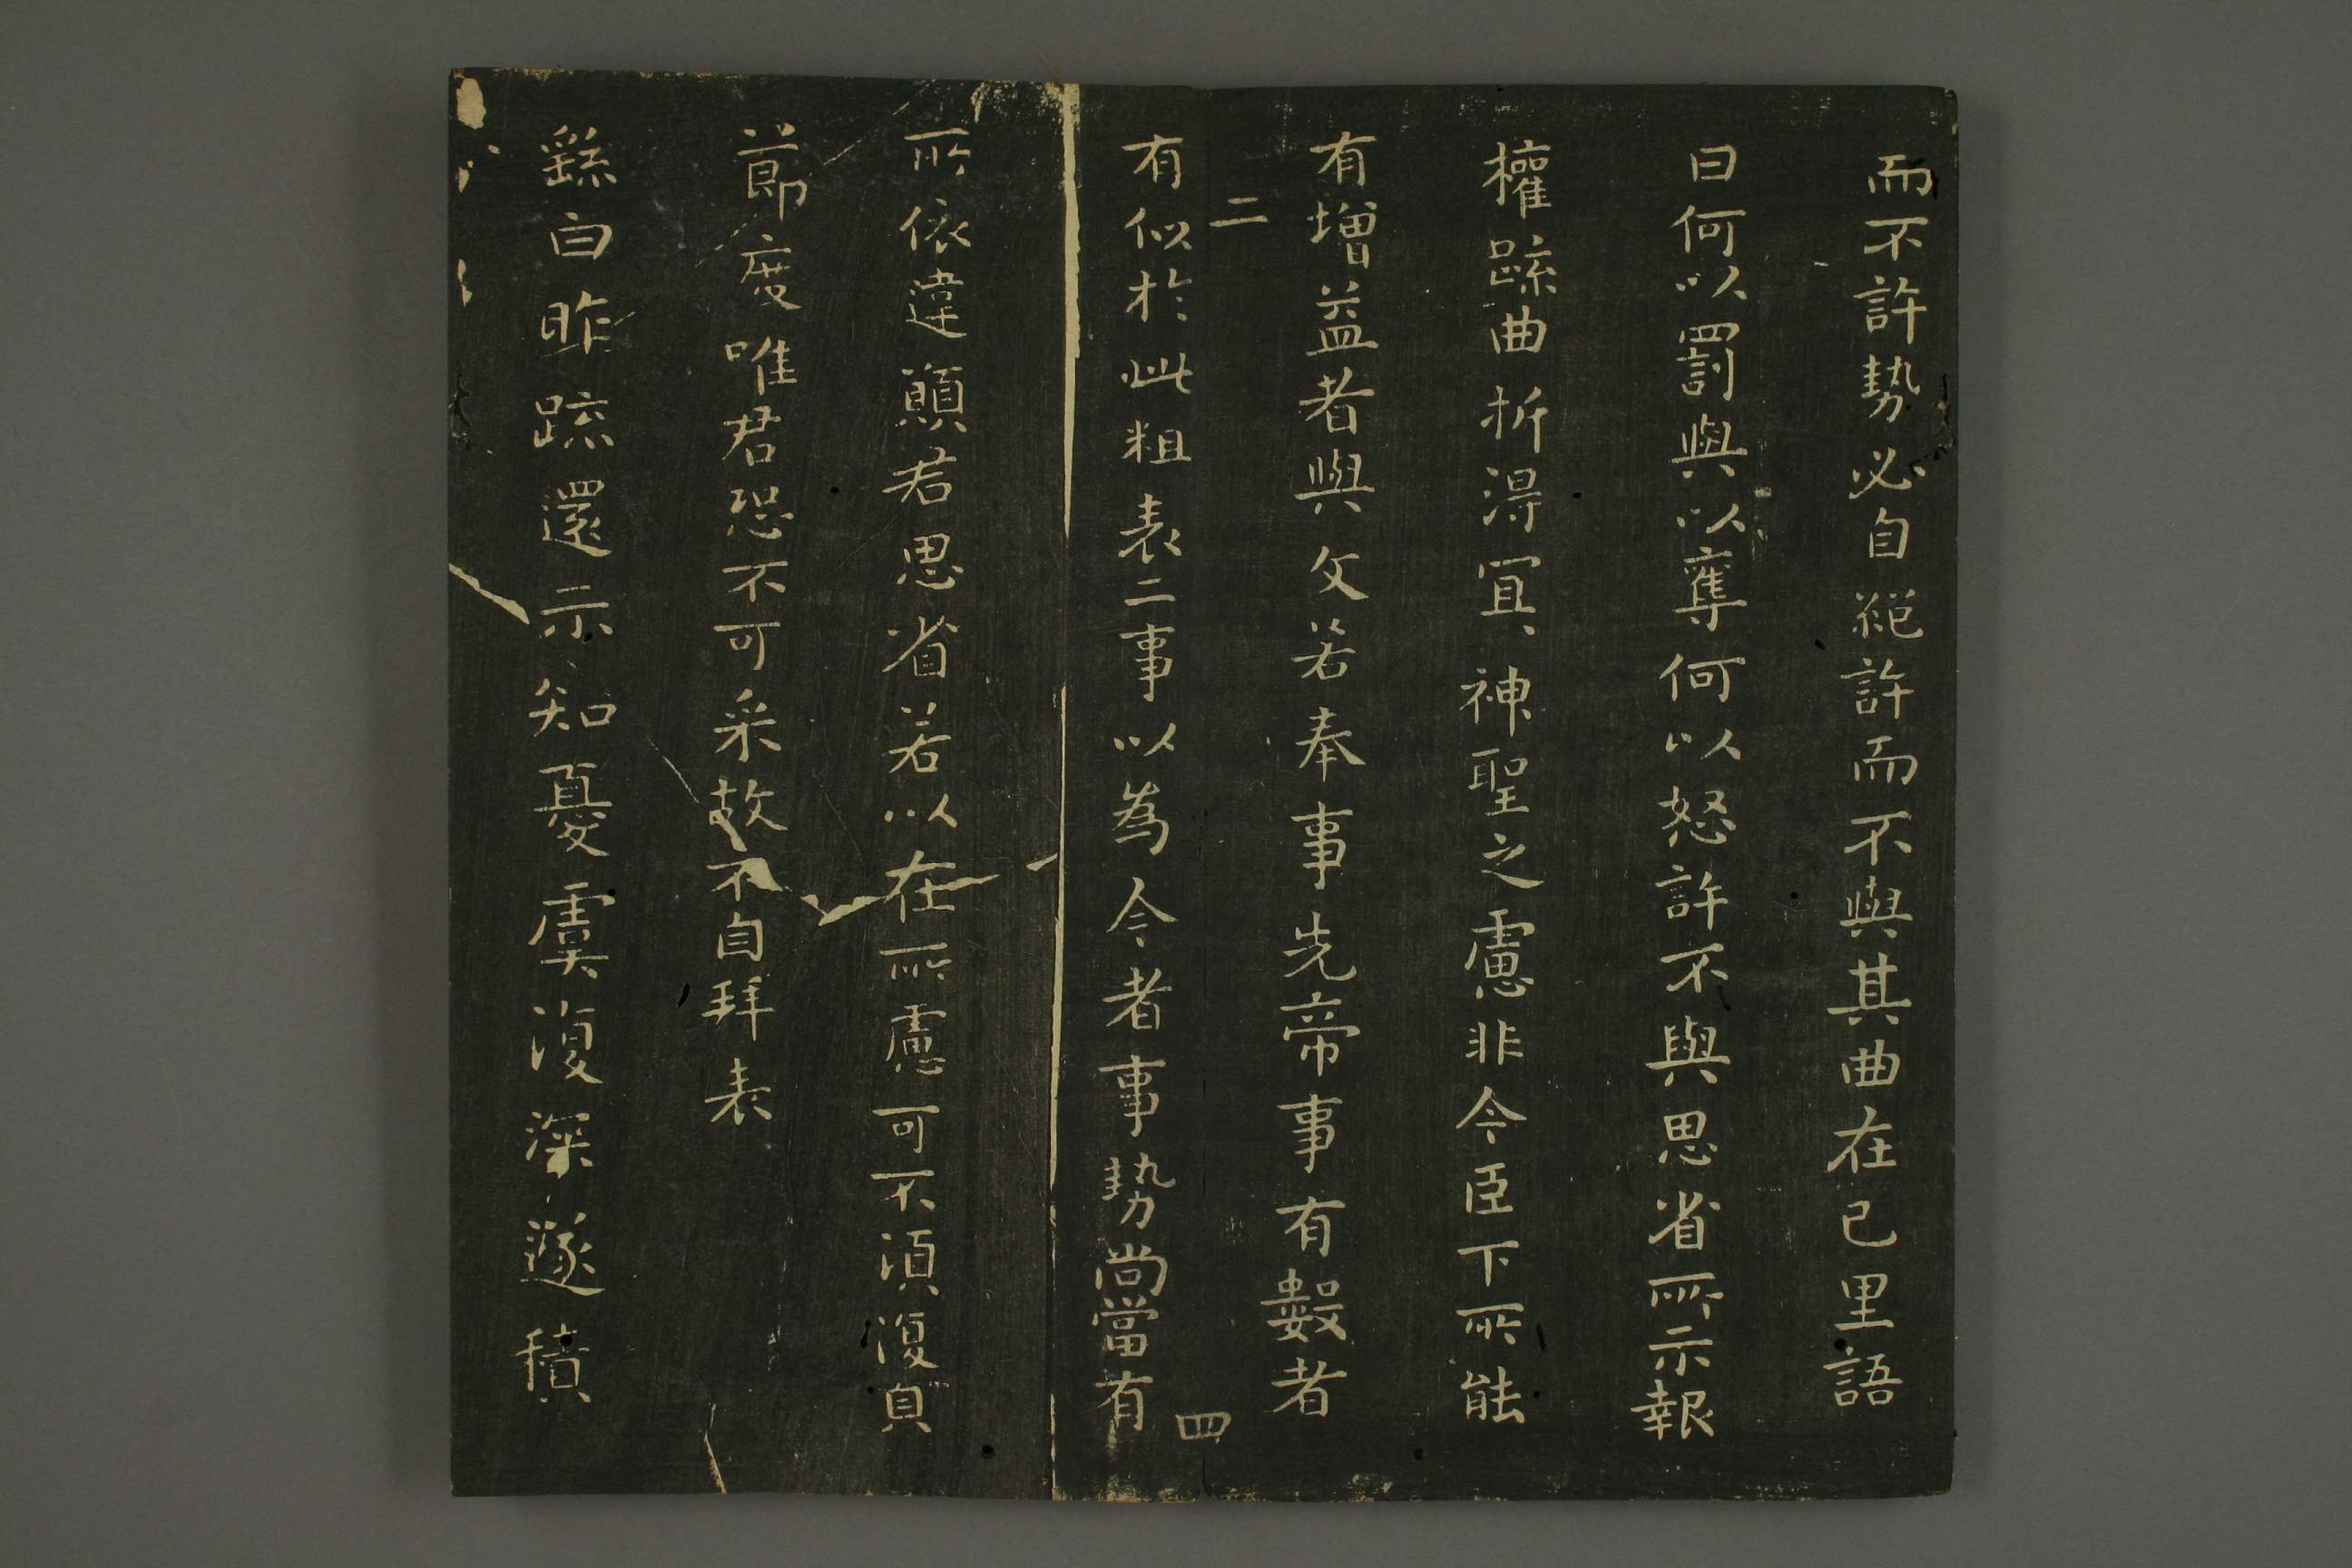 而不許勢必自絕許而不與其曲在己里語
曰何以罰與以奪何以怒許不與思省所示報
權疏曲折得宜神聖之慮非今臣下所能
有增益者與文若奉事先帝事有數者
二
四
有似於此粗表二事以為今者事勢尚當有
所依違願君思省若以在所慮可不須復皃
節度唯君恐不可采故不自拜表
繇白昨疏還示知憂虞復深遂積